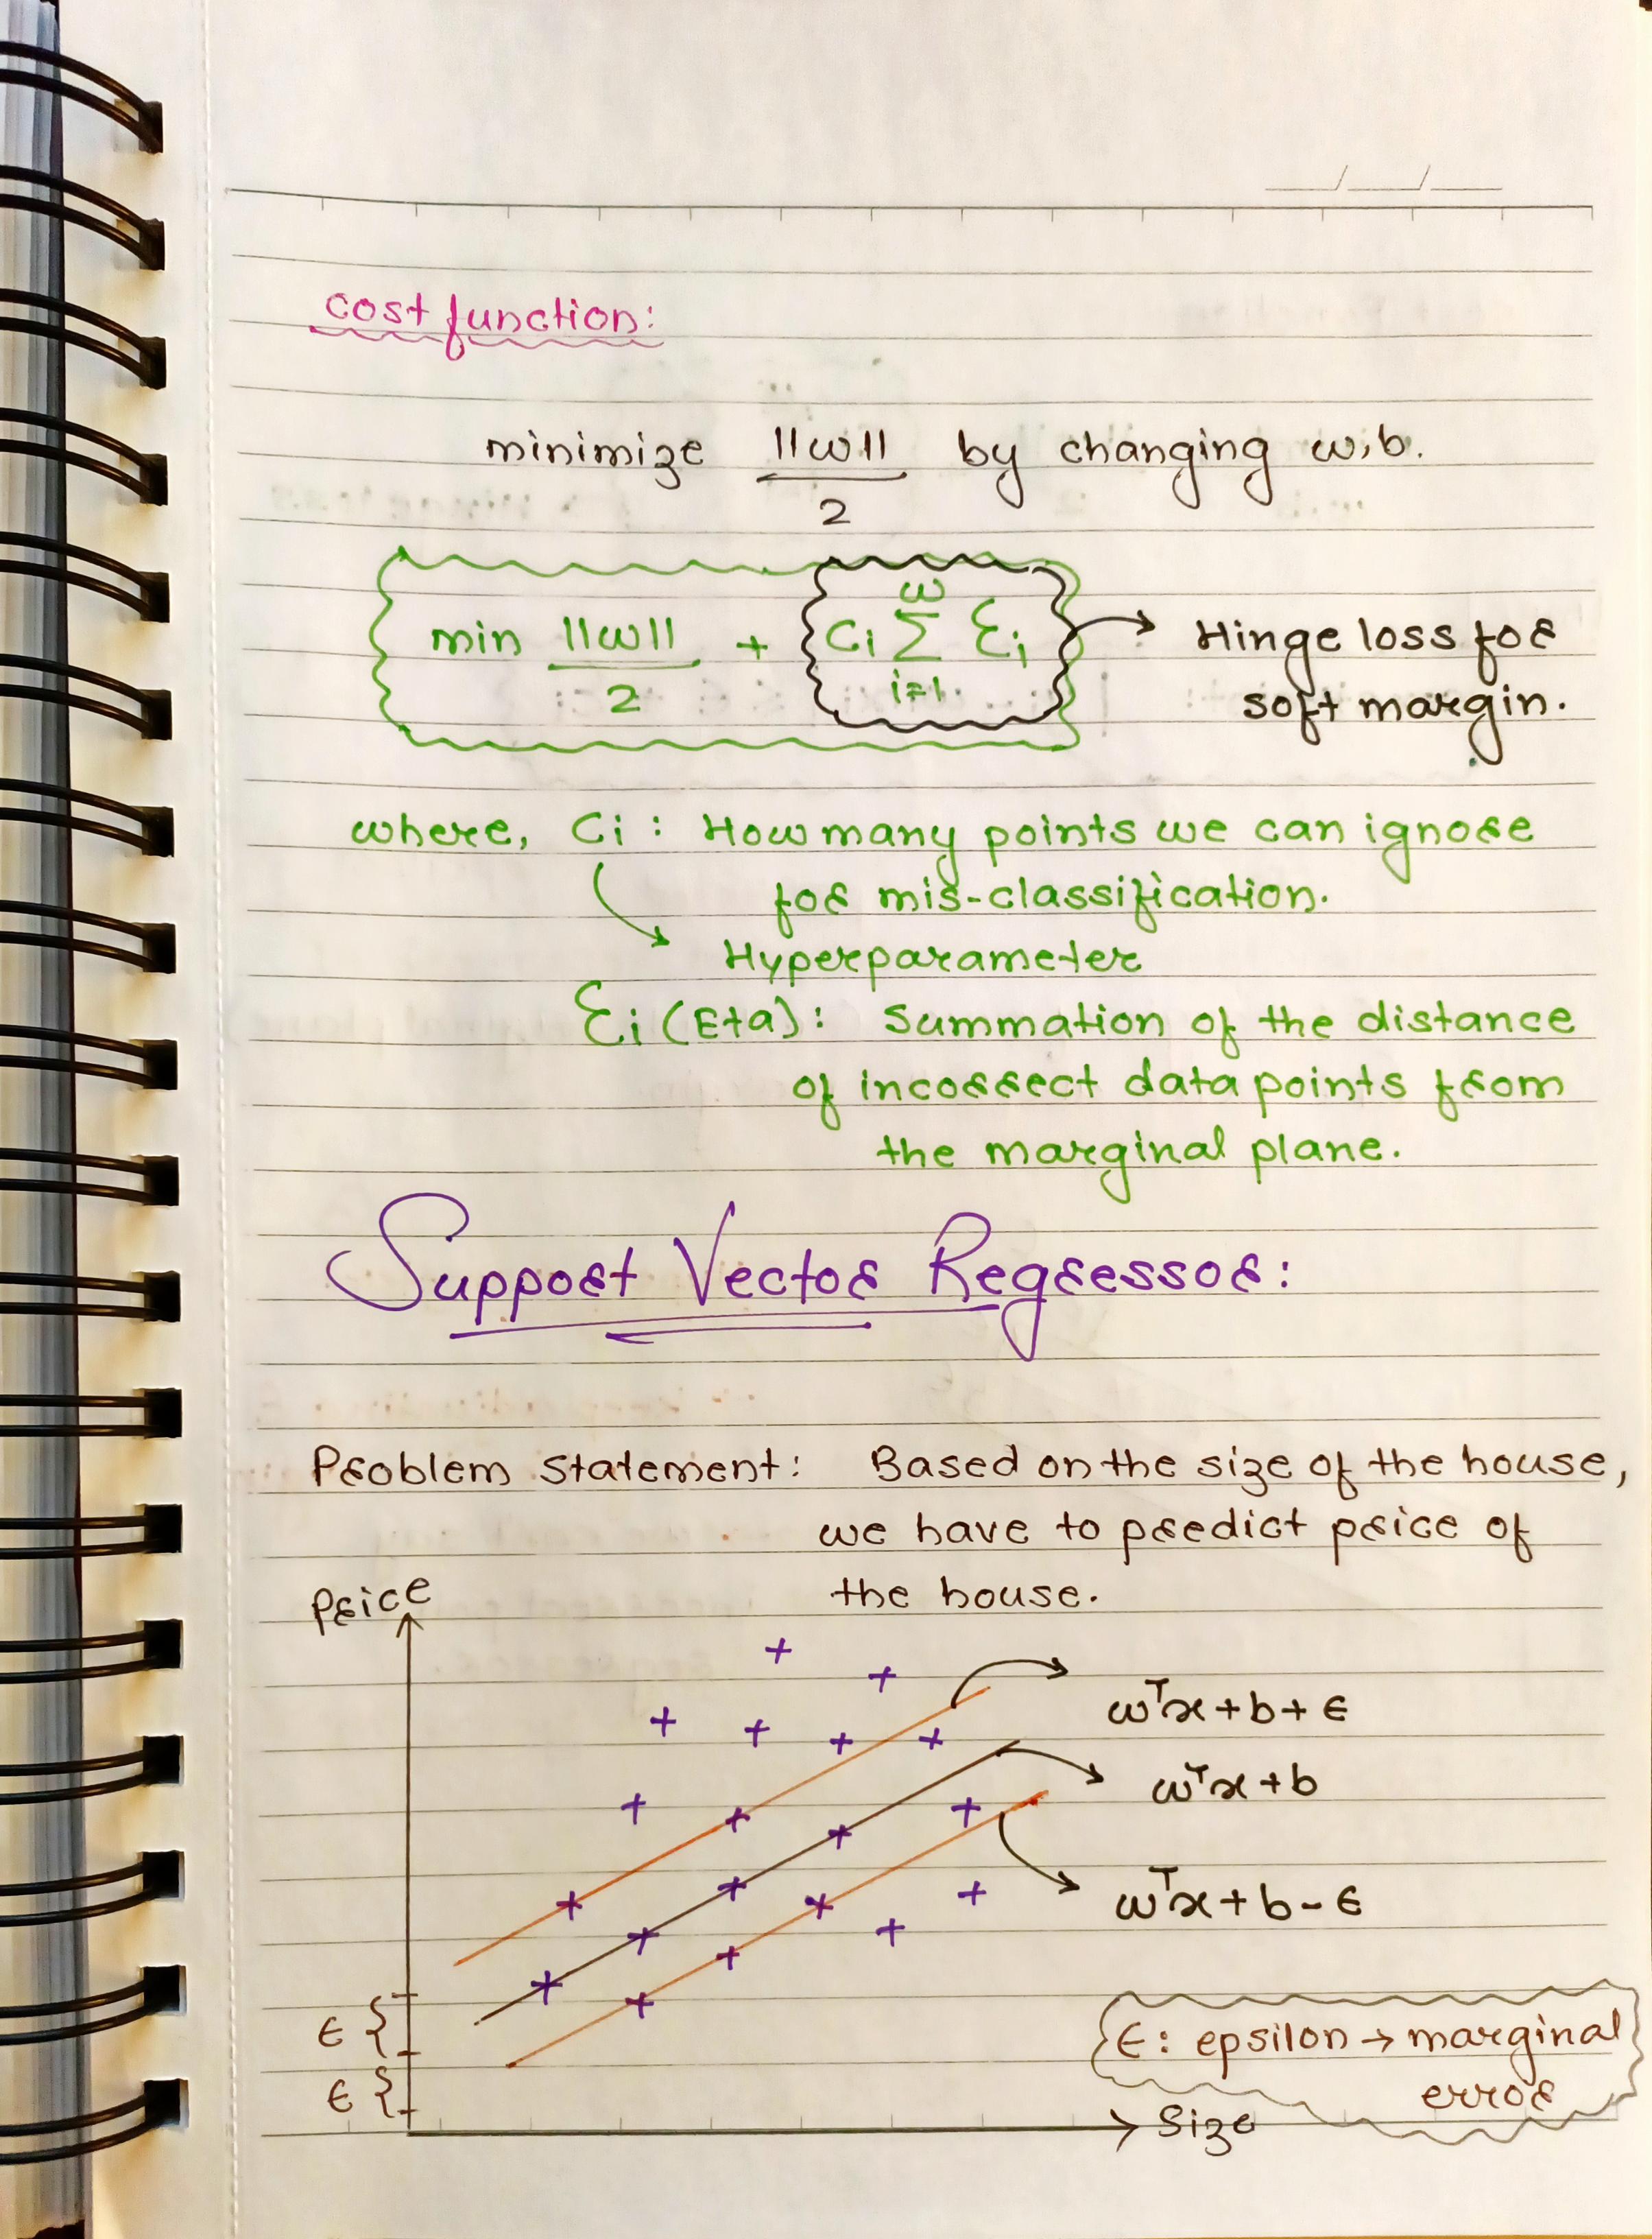 cost function:
minimize ||ω|| / 2 by changing ω,b.
min ||ω|| / 2 + Ci ω Σ i=1 ξi → Hinge loss for
soft margin.
where, Ci : How many points we can ignore
for mis-classification.
Hyperparameter
ξi (Eta): Summation of the distance
of incorrect data points from
the marginal plane.
Support Vector Regressor:
Problem statement: Based on the size of the house,
we have to predict price of
the house.
Price
ωᵀx+b+ϵ
ωᵀx+b
ωᵀx+b-ϵ
ϵ {
ϵ: epsilon → marginal
error
ϵ {
Size